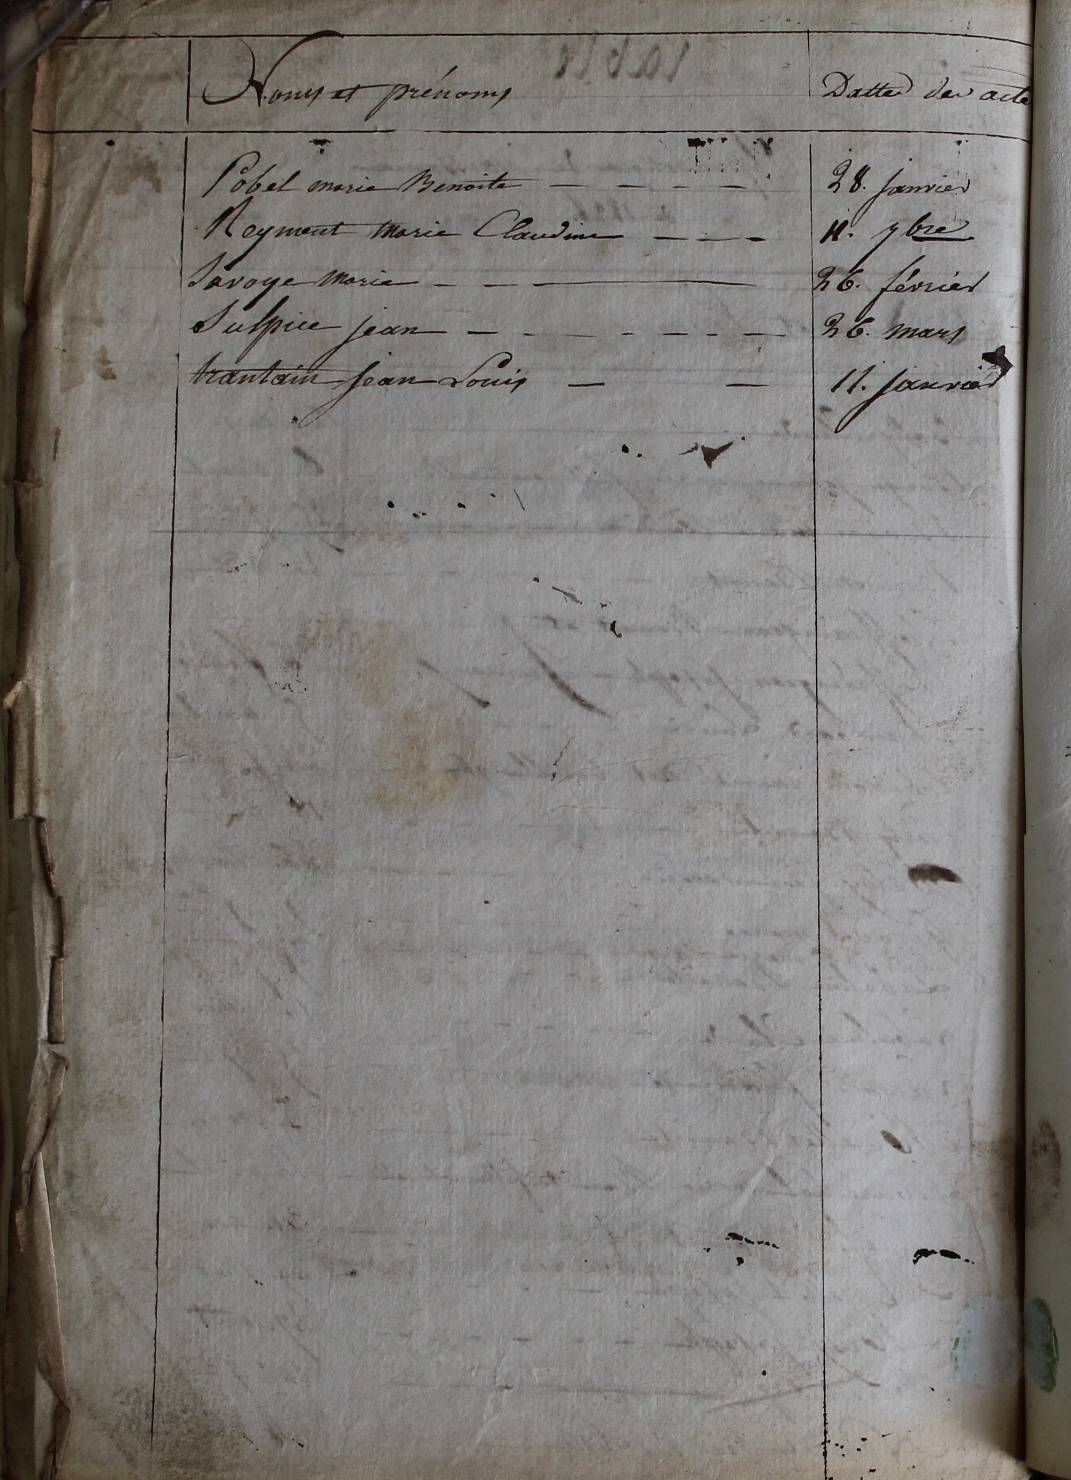 Noms et prénoms Datte des acte
Pobel marie Benoite — — — — — 28. janvier
Reymont Marie Claudine — — — 11. 7bre
Savoye Marie — — — 26. février
Sulpice jean — — — — — — — 26. mars
trantain jean Louis — — 11. janvier